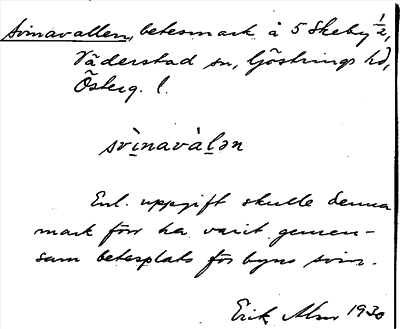 Svinavallen, betesmark å 5 Skeby 1/2,
Väderstad sn, Göstrings hd,
Österg. l.
svìnavàlən
Enl. uppgift skulle denna
mark förr ha varit gemen-
sam betesplats för byns svin.
Erik Alm 1930